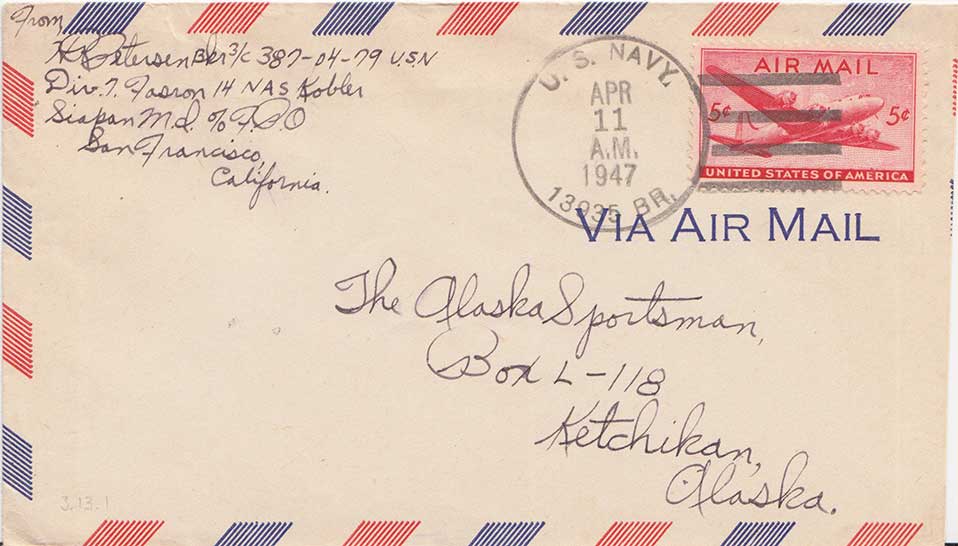 From
Petersen Bkr 3/c 387-04-79 U.S.N
Div. 7. Fasron 14 NAS Kobler
Siapan M.I. % F.P.O
San Francisco,
California.
U. S. NAVY.
APR
11
A.M.
1947
13935 BR.
AIR MAIL
5¢ 5¢
UNITED STATES OF AMERICA
VIA AIR MAIL
The Alaska Sportsman,
Box L-118
Ketchikan,
Alaska.
3.13.1